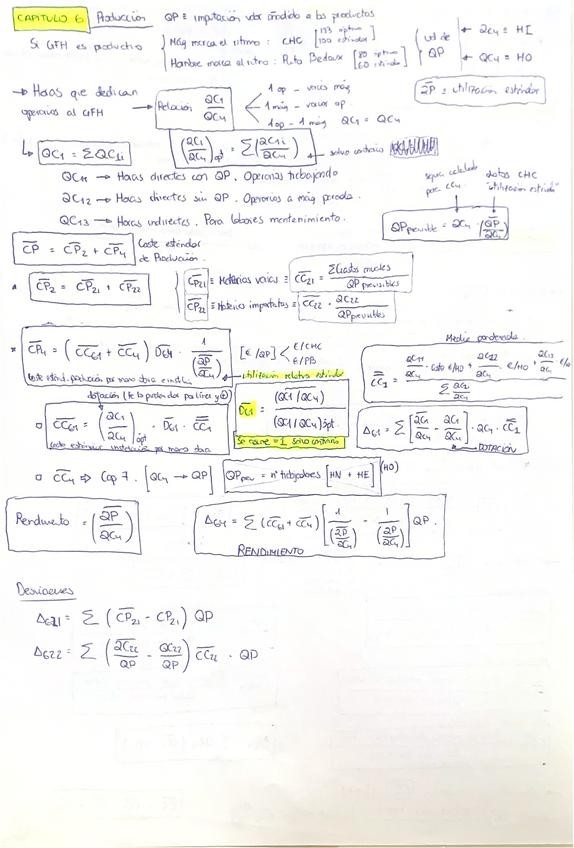 CAPITULO 6: Producción QP ≡ imputación valor añadido a los productos
Si GFH es productivo { Máq marca el ritmo: CHC [133 óptimo
100 estándar]
Hombre marca el ritmo: Pto Bedaux [80 óptimo
60 estándar]
ud de QP
QC4 ≡ HI
QC4 ≡ HO
→ Horas que dedican operarios al GFH → Relación QC1/QC4
1 op - varias máq
1 máq - varios op.
1 op - 1 máq QC1 = QC4
QP = utilización estándar
QC1 = ΣQC1i
(QC1/QC4)opt = Σ(QC1i/QC4) ← salvo contrario
QC11 → Horas directas con QP. Operarios trabajando
QC12 → Horas directas sin QP. Operarios a máq parada.
QC13 → Horas indirectas. Para labores mantenimiento.
datos CHC "utilización estándar"
QP previsible = QC4 · (QP/QC4)
CP = CP2 + CP4 Coste estándar de Producción.
* CP2 = CP21 + CP22
CP21 ≡ Materias varias ≡ CC21 = ΣGastos anuales / QP previsibles
CP22 ≡ Materias importantes ≡ CC22 · QC22 / QP previsibles
* CP4 = (CC61 + CC4) D61 · 1/(QP/QC4) [€/QP] < €/CHC
€/PB
utilización relativa estándar
Media ponderada
D61 = (QC1/QC4) / (QC1/QC4)ópt
Se asume = 1 salvo contrario
o CC61 = (QC1/QC4)ópt · D61 · CC1
Δ61 = Σ [QC1/QC4 - QC1/QC4] · QC4 · CC1
DOTACIÓN
o CC4 ⇒ Cap 7. [QC4 → QP] QPprev = nº trabajadores [HN + HE] (HO)
Rendimiento = (QP/QC4)
Δ64 = Σ (CC61 + CC4) [1/(QP/QC4) - 1/(QP/QC4)] QP.
RENDIMIENTO
Desviaciones
Δ621 = Σ (CP21 - CP21) QP
Δ622 = Σ (QC22/QP - QC22/QP) CC22 · QP